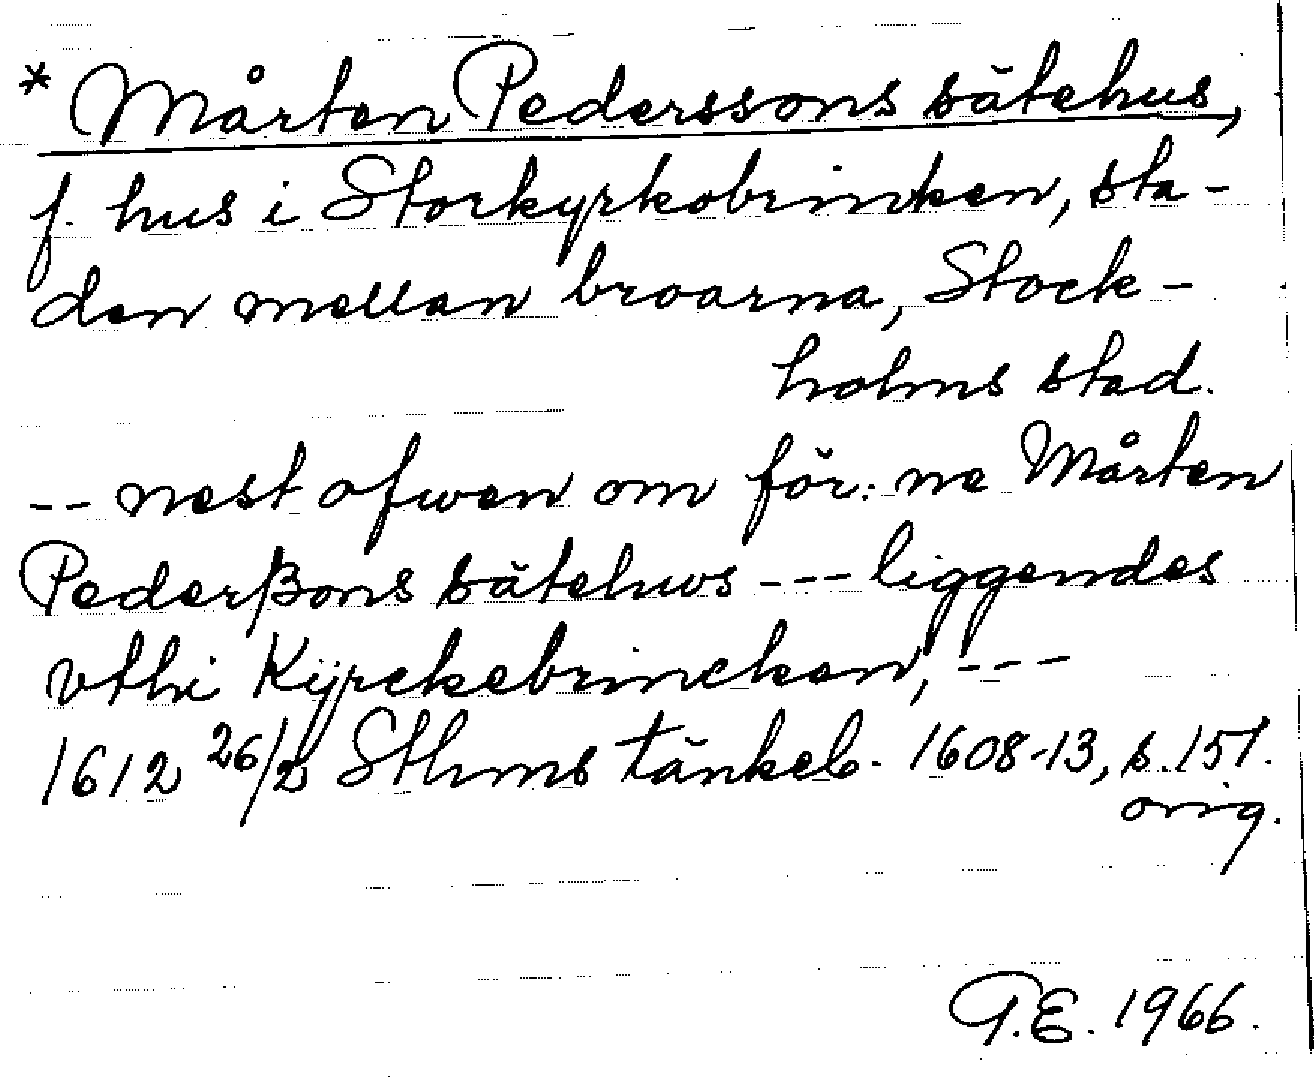 * Mårten Pederssons sätehus,
f. hus i Storkyrkobrinken, sta-
den mellan broarna, Stock-
holms stad.
-- nest ofwen om för: ne Mårten
Pederßons sätehws --- liggendes
vthi Kÿrckebrincken, ---
1612 26/2 Sthms tänkeb. 1608-13, s. 151.
orig.
G.E. 1966.